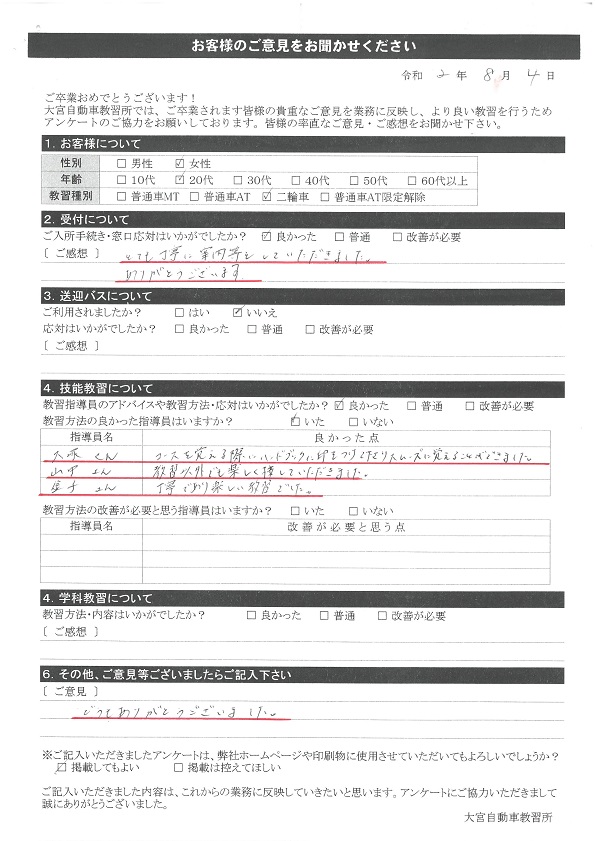 お客様のご意見をお聞かせください
令和 2 年 8 月 4 日
ご卒業おめでとうございます！
大宮自動車教習所では、ご卒業されます皆様の貴重なご意見を業務に反映し、より良い教習を行うため
アンケートのご協力をお願いしております。皆様の率直なご意見・ご感想をお聞かせ下さい。
1. お客様について
性別 □ 男性 ☑ 女性
年齢 □ 10代 ☑ 20代 □ 30代 □ 40代 □ 50代 □ 60代以上
教習種別 □ 普通車MT □ 普通車AT ☑ 二輪車 □ 普通車AT限定解除
2. 受付について
ご入所手続き・窓口応対はいかがでしたか？ ☑ 良かった □ 普通 □ 改善が必要
[ ご感想 ] とても丁寧に案内等をしていただきました。
ありがとうございます
3. 送迎バスについて
ご利用されましたか？ □ はい ☑ いいえ
応対はいかがでしたか？ □ 良かった □ 普通 □ 改善が必要
[ ご感想 ]
4. 技能教習について
教習指導員のアドバイスや教習方法・応対はいかがでしたか？ ☑ 良かった □ 普通 □ 改善が必要
教習方法の良かった指導員はいますか？ ☑ いた □ いない
指導員名 良かった点
コースを覚える際にハンドブックに印をつけてくださりスムーズに覚えることができました。
山中さん 教習以外でも楽しく接していただきました。
さん 丁寧であり楽しい教習でした。
教習方法の改善が必要と思う指導員はいますか？ □ いた □ いない
指導員名 改善が必要と思う点
4. 学科教習について
教習方法・内容はいかがでしたか？ □ 良かった □ 普通 □ 改善が必要
[ ご感想 ]
6. その他、ご意見等ございましたらご記入下さい
[ ご意見 ]
どうもありがとうございました。
※ご記入いただきましたアンケートは、弊社ホームページや印刷物に使用させていただいてもよろしいでしょうか？
☑ 掲載してもよい □ 掲載は控えてほしい
ご記入いただきました内容は、これからの業務に反映していきたいと思います。アンケートにご協力いただきまして
誠にありがとうございました。
大宮自動車教習所